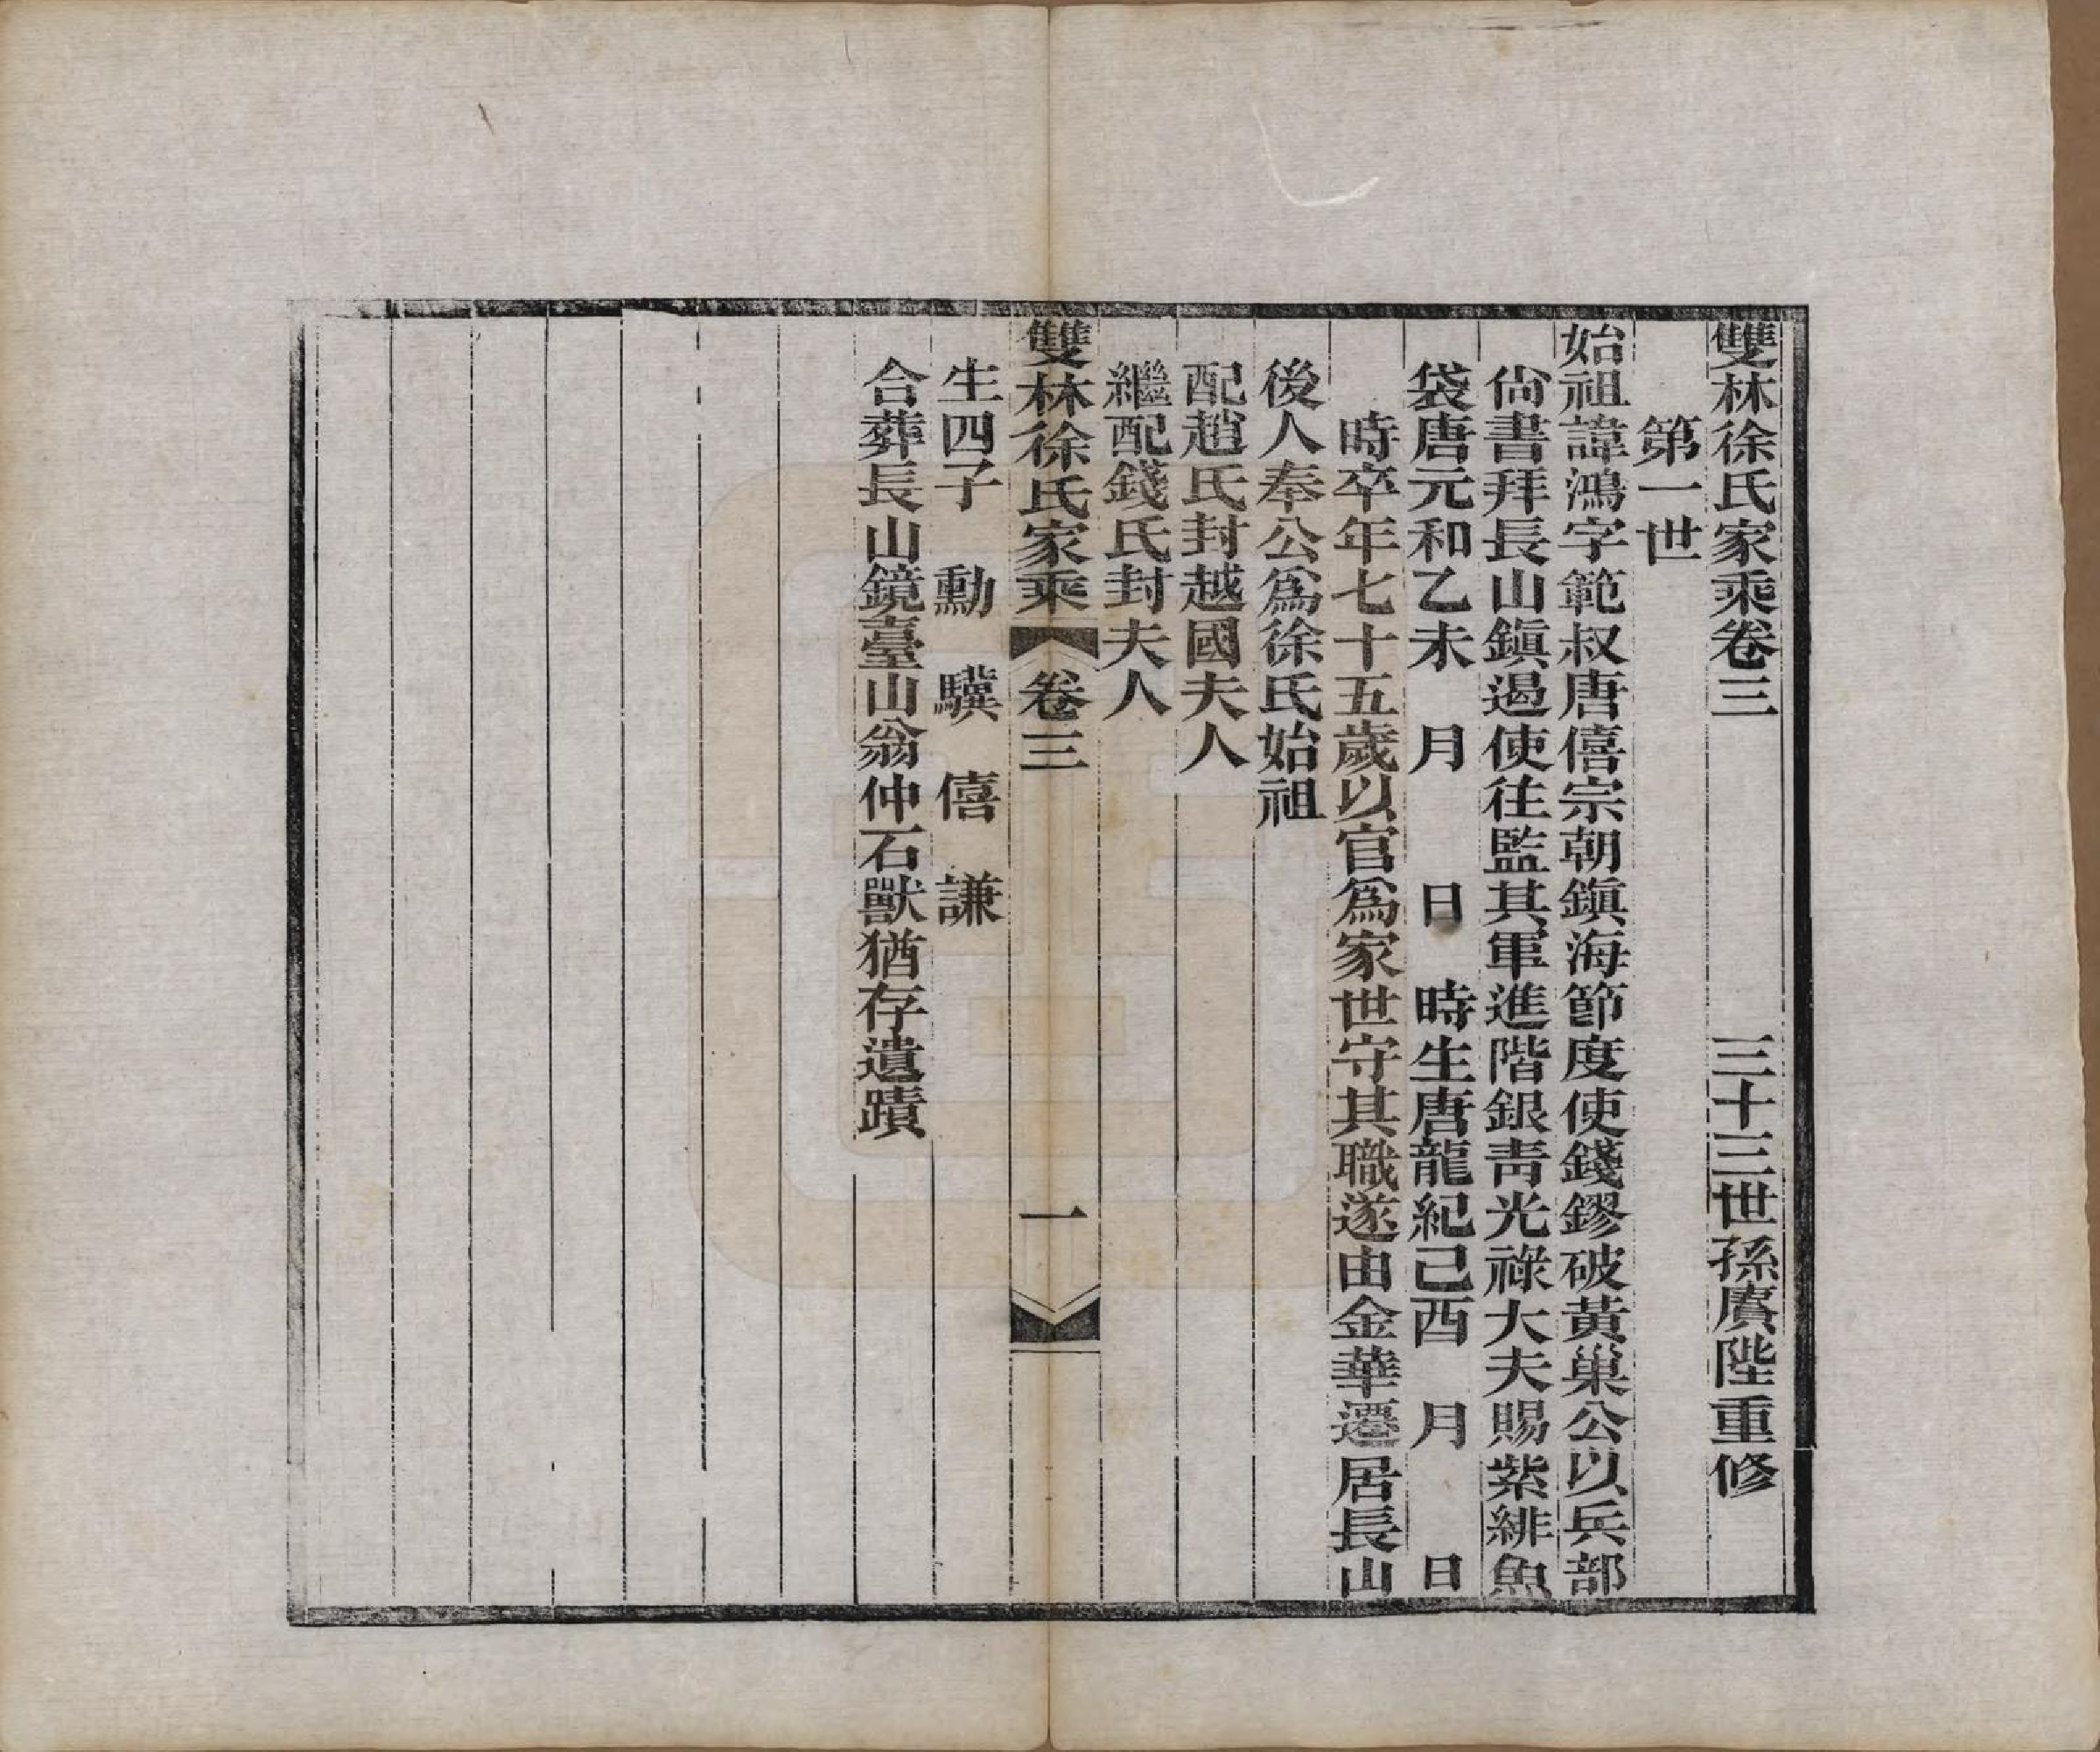 雙林徐氏家乘卷三　三十三世孫賡陛重修
第一世
始祖諱鴻字範叔唐僖宗朝鎭海節度使錢鏐破黃巢公以兵部
尙書拜長山鎭遏使往監其軍進階銀靑光祿大夫賜紫緋魚
袋唐元和乙未　月　　日　時生唐龍紀己酉　月　　日
時卒年七十五歲以官爲家世守其職遂由金華遷居長山
後人奉公爲徐氏始祖
配趙氏封越國夫人
繼配錢氏封夫人
雙林徐氏家乘　卷三　一
生四子　勳　驥　僖　謙
合葬長山鏡臺山翁仲石獸猶存遺蹟